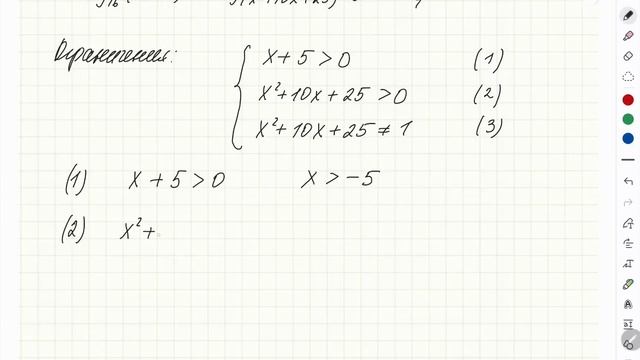 Ограничения:
x + 5 > 0 (1)
x² + 10x + 25 > 0 (2)
x² + 10x + 25 ≠ 1 (3)
(1) x + 5 > 0 x > −5
(2) x² +